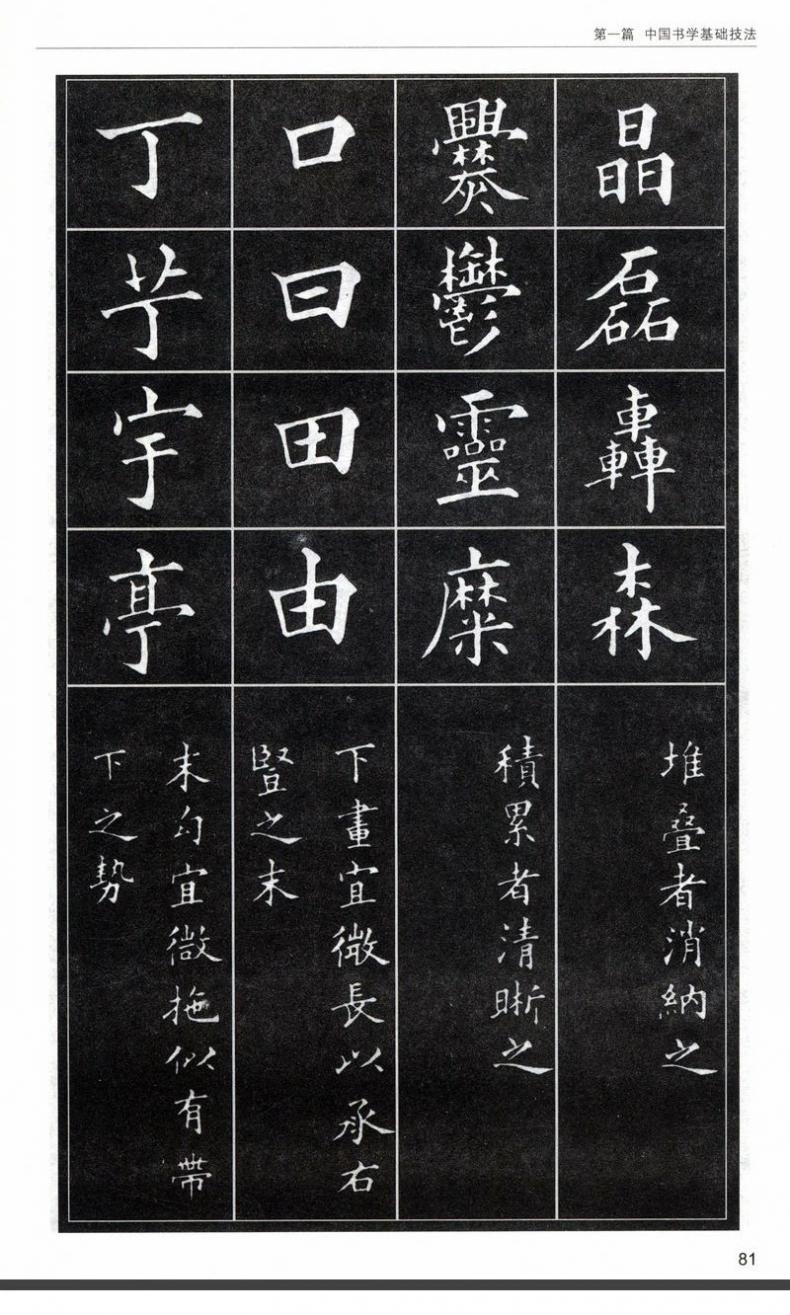 第一篇 中国书学基础技法
晶磊轟森
堆叠者消納之
爨鬱靈糜
積累者清晰之
口曰田由
下畫宜微長以承右
豎之末
丁芋宇亭
末勾宜微拖似有帶
下之勢
81